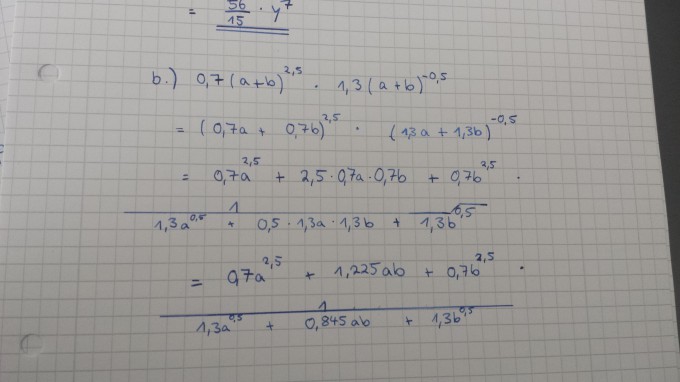 = 56/15 · y^7
b.) 0,7(a+b)^2,5 · 1,3(a+b)^-0,5
= (0,7a + 0,7b)^2,5 · (1,3a + 1,3b)^-0,5
= 0,7a^2,5 + 2,5·0,7a·0,7b + 0,7b^2,5 ·
1
1,3a^0,5 + 0,5·1,3a·1,3b + 1,3b^0,5
= 0,7a^2,5 + 1,225ab + 0,7b^2,5 ·
1
1,3a^0,5 + 0,845ab + 1,3b^0,5